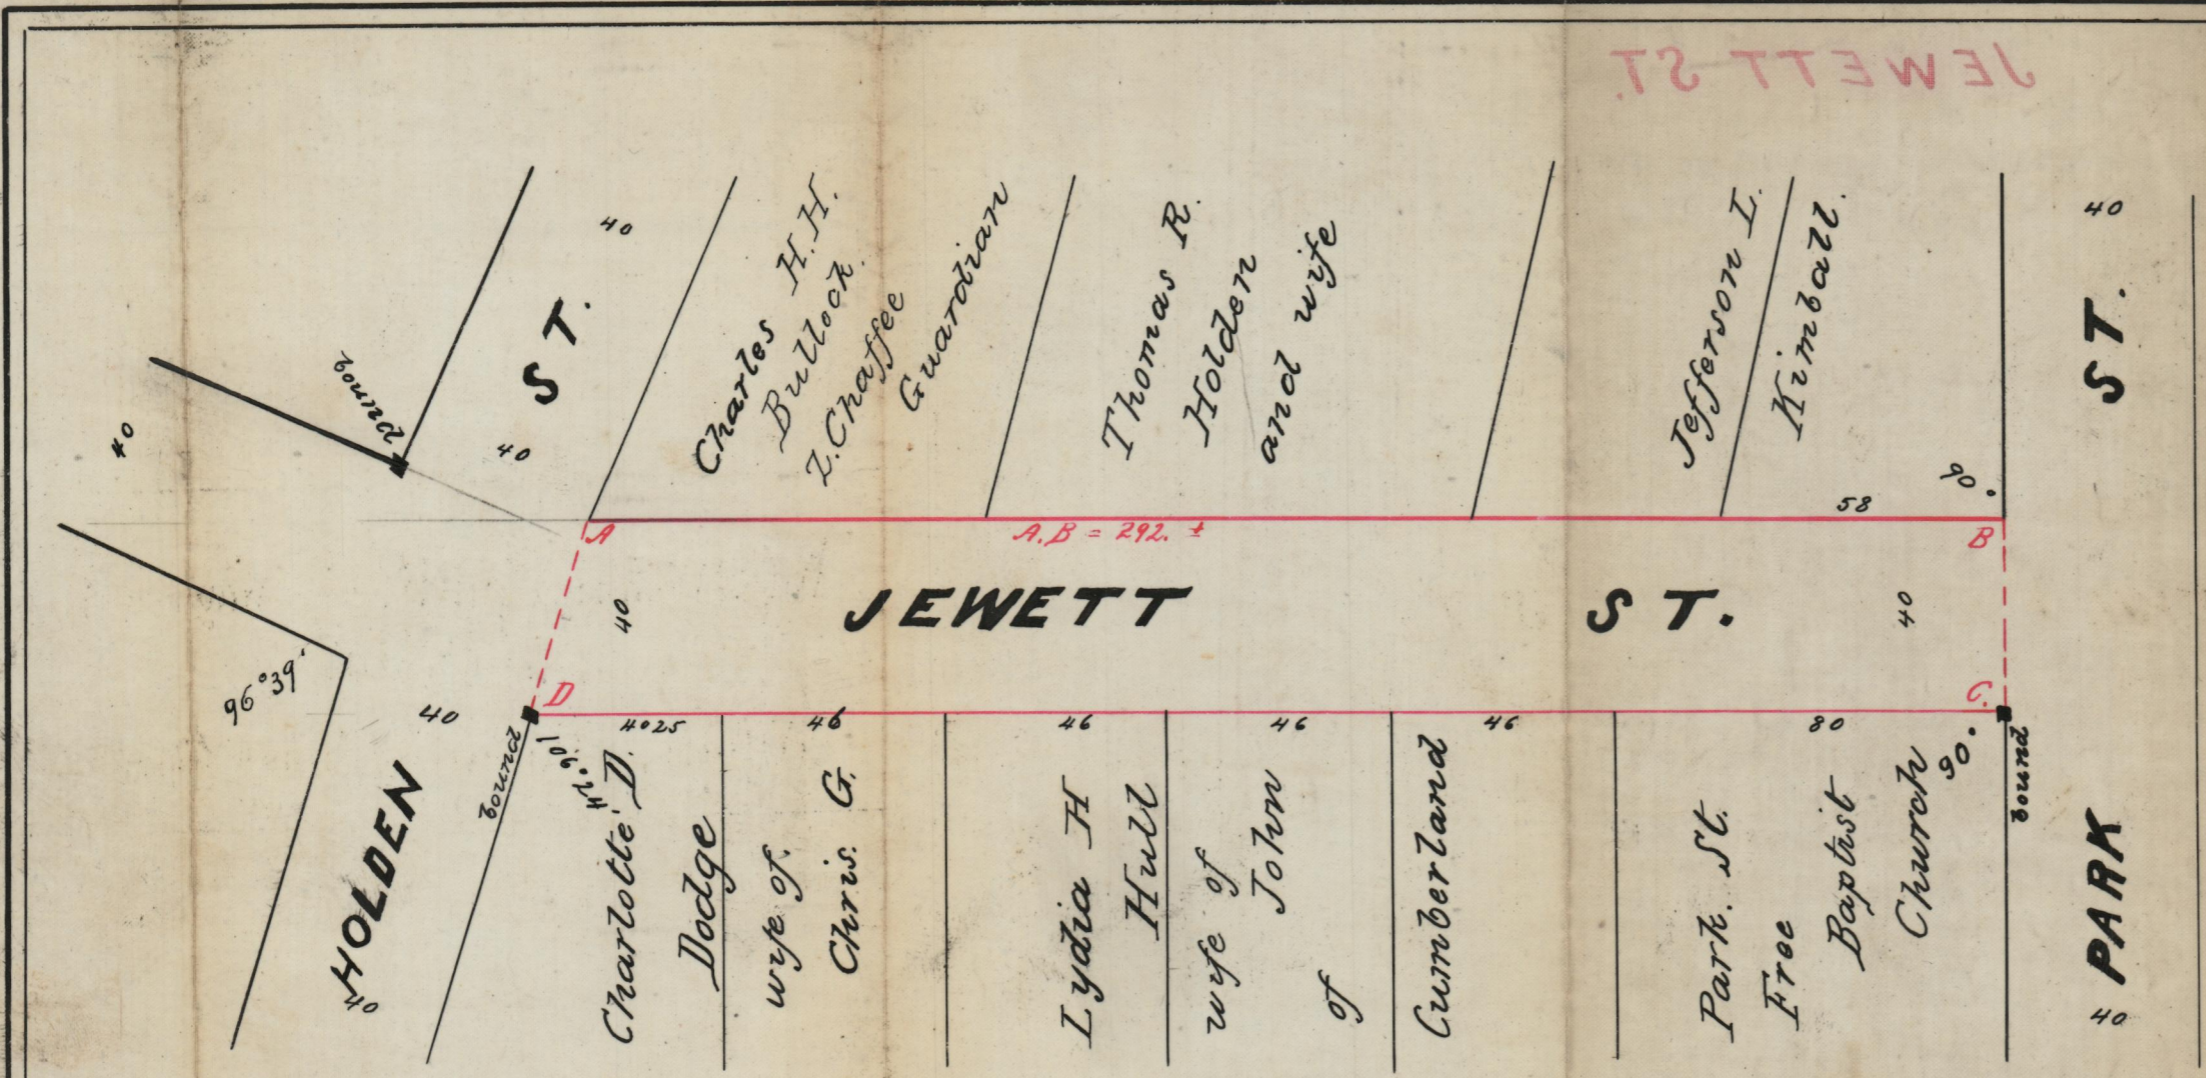 JEWETT ST.
40
ST.
40
bound
40
Charles H.H.
Bullock.
Z. Chaffee
Guardian
Thomas R.
Holden
and wife
Jefferson L.
Kimball.
58
90.
40
ST.
A
A.B = 292. ±
B
40
JEWETT ST.
40
96°39'
40
HOLDEN
40
bound
D
4025
46
46
46
46
80
C.
90.
bound
Charlotte D.
Dodge
wife of
Chris. G.
Lydia H
Hull
wife of
John
of
Cumberland
Park. St.
Free
Baptist
Church
PARK
40